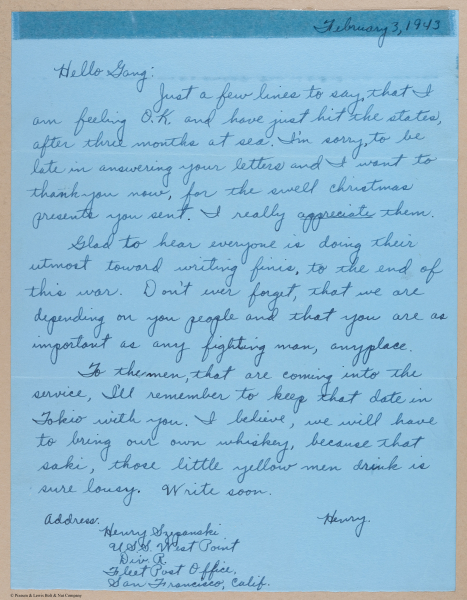 February 3, 1943
Hello Gang:
Just a few lines to say, that I
am feeling O.K. and have just hit the states,
after three months at sea. I'm sorry, to be
late in answering your letters and I want to
thank you now, for the swell christmas
presents you sent. I really appreciate them.
Glad to hear everyone is doing their
utmost toward writing finis, to the end of
this war. Don't ever forget, that we are
depending on you people and that you are as
important as any fighting man, anyplace.
To the men, that are coming into the
service, I'll remember to keep that date in
Tokio with you. I believe, we will have
to bring our own whiskey, because that
saki, those little yellow men drink is
sure lousy. Write soon.
Address. Henry.
Henry Szepanski
U.S.S. West Point
Div. R
Fleet Post Office.
San Francisco, Calif.
© Pioneers & Lewis Bolt & Nut Company